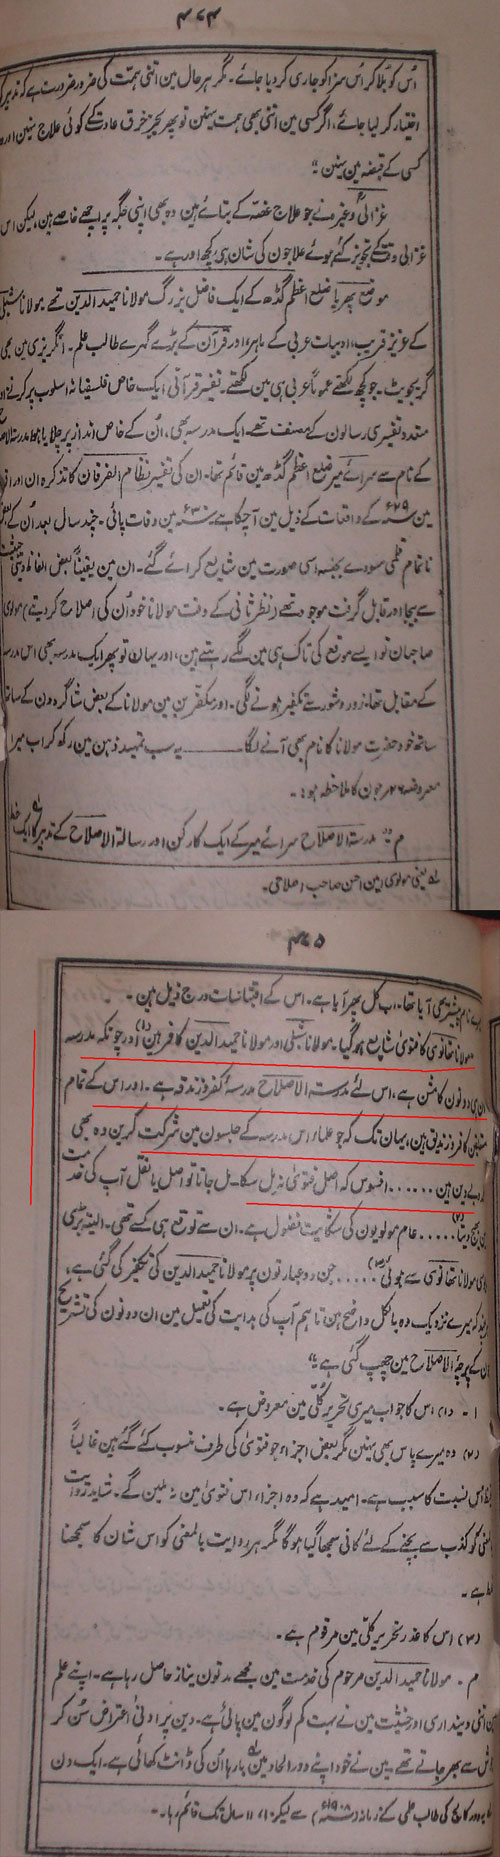 ۴۷۴
اُس کو بلا کر اُس سزا کو جاری کر دیا جائے۔ مگر ہر حال مین اتنی ہمت کی ضرور ضرورت ہے کہ تدبیر کو
اختیار کر لیا جائے، اگر کسی مین اتنی بھی ہمت نہین تو پھر بجز خرق عادت کے کوئی علاج نہین اور وہ
کسی کے قبضہ مین نہین۔"
غزالیؒ وغیرہ نے جو علاج غصّہ کے بتائے ہین وہ بھی اپنی جگہ پر اچھے خاصے ہین لیکن اس
غزالی وقت کے تجویز کئے ہوئے علاجون کی شان ہی کچھ اور ہے۔
موضع پھریا ضلع اعظم گڈھ کے ایک فاضل بزرگ مولانا حمید الدین تھے۔ مولانا شبلی
کے عزیز قریب، ادبیات عربی کے ماہر، اور قرآن کے بڑے گہرے طالب علم۔ انگریزی مین بھی
گریجویٹ۔ جو کچھ لکھتے عموماً عربی ہی مین لکھتے۔ تفسیر قرآنی ایک خاص فلسفیانہ اسلوب پر کرتے اور
متعدد تفسیری رسالون کے مصنف تھے۔ ایک مدرسہ بھی، اُن کے خاص انداز پر چلایا ہوا مدرسۃ الاصلاح
کے نام سے سرائے میر ضلع اعظم گڈھ مین قائم تھا۔ ان کی تفسیر نظام الفرقان کا تذکرہ ان اوراق
مین ۲۹ء کے واقعات کے ذیل مین آ چکا ہے ۳۰ء مین وفات پائی۔ چند سال بعد اُن کے بعض
ناتمام قلمی مسودے بجنسہ اسی صورت مین شایع کرائے گئے۔ ان مین یقیناً بعض الفاظ دینی حیثیت
سے بیجا اور قابل گرفت موجود تھے (نظر ثانی کے وقت مولانا خود اُن کی اصلاح کر دیتے) مولوی
صاحبان تو ایسے موقع کی تاک ہی مین لگے رہتے ہین، اور یہان تو پھر ایک مدرسہ بھی اس مدرسہ
کے مقابل تھا، زور و شور سے تکفیر ہونے لگی۔ اور مکفرین مین مولانا کے بعض شاگردون کے ساتھ
ساتھ خود حضرت مولانا کا نام بھی آنے لگا ــــــــ یہ سب تمہید ذہن مین رکھ کر اب میرا
معروضہ ۲۶ جون کا ملاحظہ ہو:۔
م۔ مدرسۃ الاصلاح سرائے میر کے ایک کارکن اور رسالۃ الاصلاح کے مدیر کا ایک خط
لہ یعنی مولوی امین احسن صاحب اصلاحی۔
۴۷۵
میرے نام پیشتر بھی آیا تھا۔ اب کل پھر آیا ہے۔ اس کے اقتباسات درج ذیل ہین۔
مولانا تھانوی کا فتویٰ شایع ہو گیا۔ مولانا شبلی اور مولانا حمید الدین کافر ہین (۱) اور چونکہ مدرسہ
ان ہی دونون کا مشن ہے، اس لئے مدرستہ الاصلاح مدرسۂ کفر و زندقہ ہے۔ اور اس کے تمام
متعلقین کافر و زندیق ہین، یہان تک کہ جو علماء اس مدرسہ کے جلسون مین شرکت کرین وہ بھی
ملحد و بے دین ہین ...... افسوس کہ اصل فتویٰ نہ مل سکا۔ مل جاتا تو اصل یا نقل آپ کی خدمت
مین بھیج دیتا (۲) ..... عام مولویون کی شکایت فضول ہے۔ ان سے توقع ہی کسے تھی۔ البتہ بڑی
مایوسی مولانا تھانوی سے ہوئی (۳) ..... جن دو عبارتون پر مولانا حمید الدین کی تکفیر کی گئی ہے،
ہرچند کہ میرے نزدیک وہ بالکل واضح ہین تاہم آپ کی ہدایت کی تعمیل مین ان دونون کی تشریح
ان کے پرچۂ الاصلاح مین چھپ گئی ہے۔"
ا۔ (۱) اس کا جواب میری تحریر کُلّی مین معروض ہے۔
(۲) وہ میرے پاس بھی نہین مگر بعض اجزاء جو فتویٰ کی طرف منسوب کئے گئے ہین غالباً
اس نسبت کا سبب ہے۔ امید ہے کہ وہ اجزاء، اس فتویٰ مین نہ ملین گے۔ شاید روایت
بالمعنی کو کذب سے بچنے کے لئے کافی سمجھا گیا ہو گا مگر ہر روایت بالمعنی کو اس شان کا سمجھنا
غلط ہے۔
(۳) اس کا عذر تحریر کُلّی مین مرقوم ہے۔
م۔ مولانا حمید الدین مرحوم کی خدمت مین مجھے مدتون نیاز حاصل رہا ہے۔ اپنے علم
مین اتنی دینداری اور خشیت مین نے بہت کم لوگون مین پائی ہے۔ دین پر ادنیٰ اعتراض سُن کر
جوش سے بھر جاتے تھے۔ مین نے خود اپنے دور الحاد مین لہ بارہا اُن کی ڈانٹ کھائی ہے۔ ایک دن
لہ یہ دور کالج کی طالب علمی کے زمانہ (۱۹۰۸ء) سے لیکر ۱۰، ۱۱ سال تک قائم رہا۔